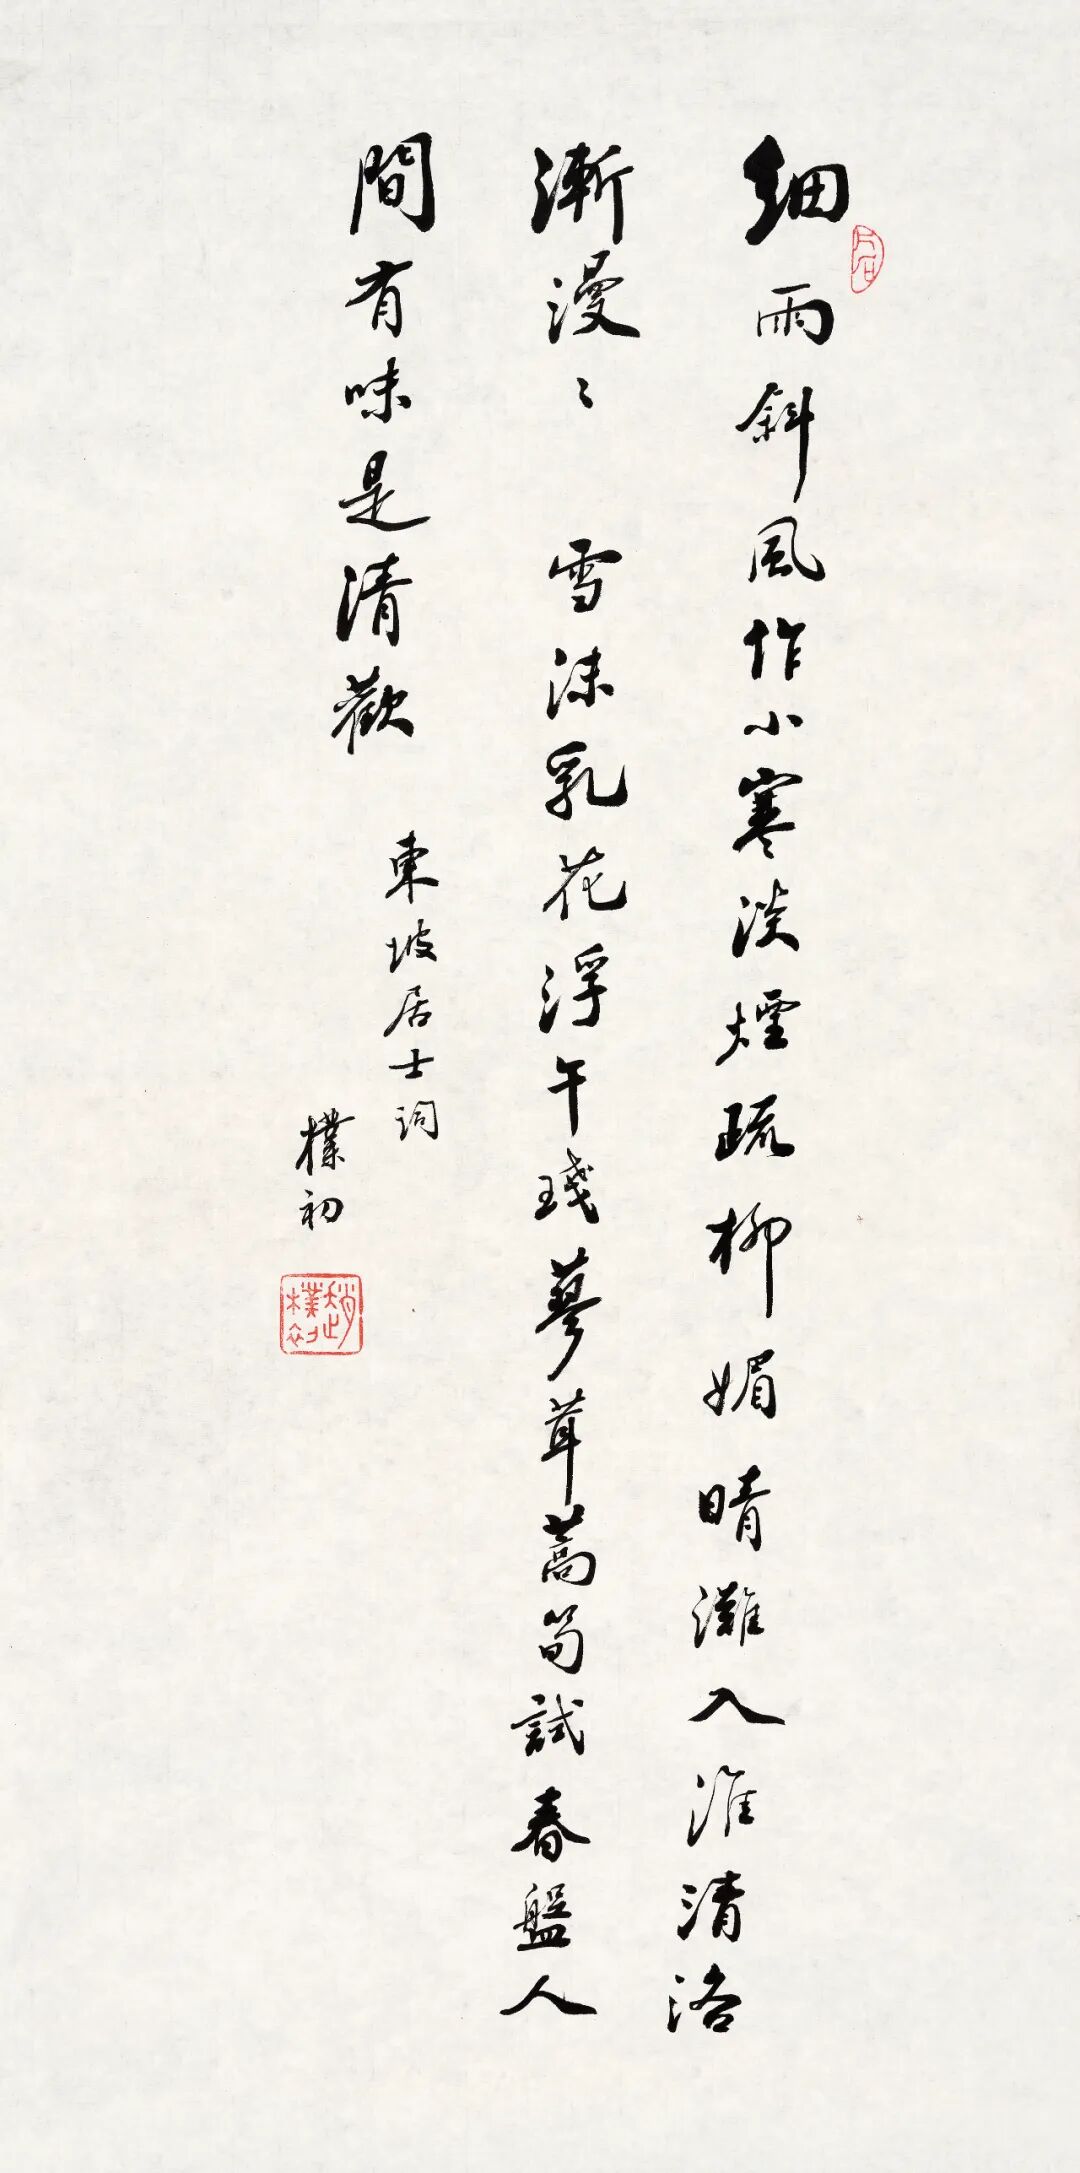 細雨斜風作小寒淡煙疏柳媚晴灘入淮清洛
漸漫〻 雪沫乳花浮午琖蓼茸蒿筍試春盤人
間有味是清歡
東坡居士詞
樸初
趙樸初
片石